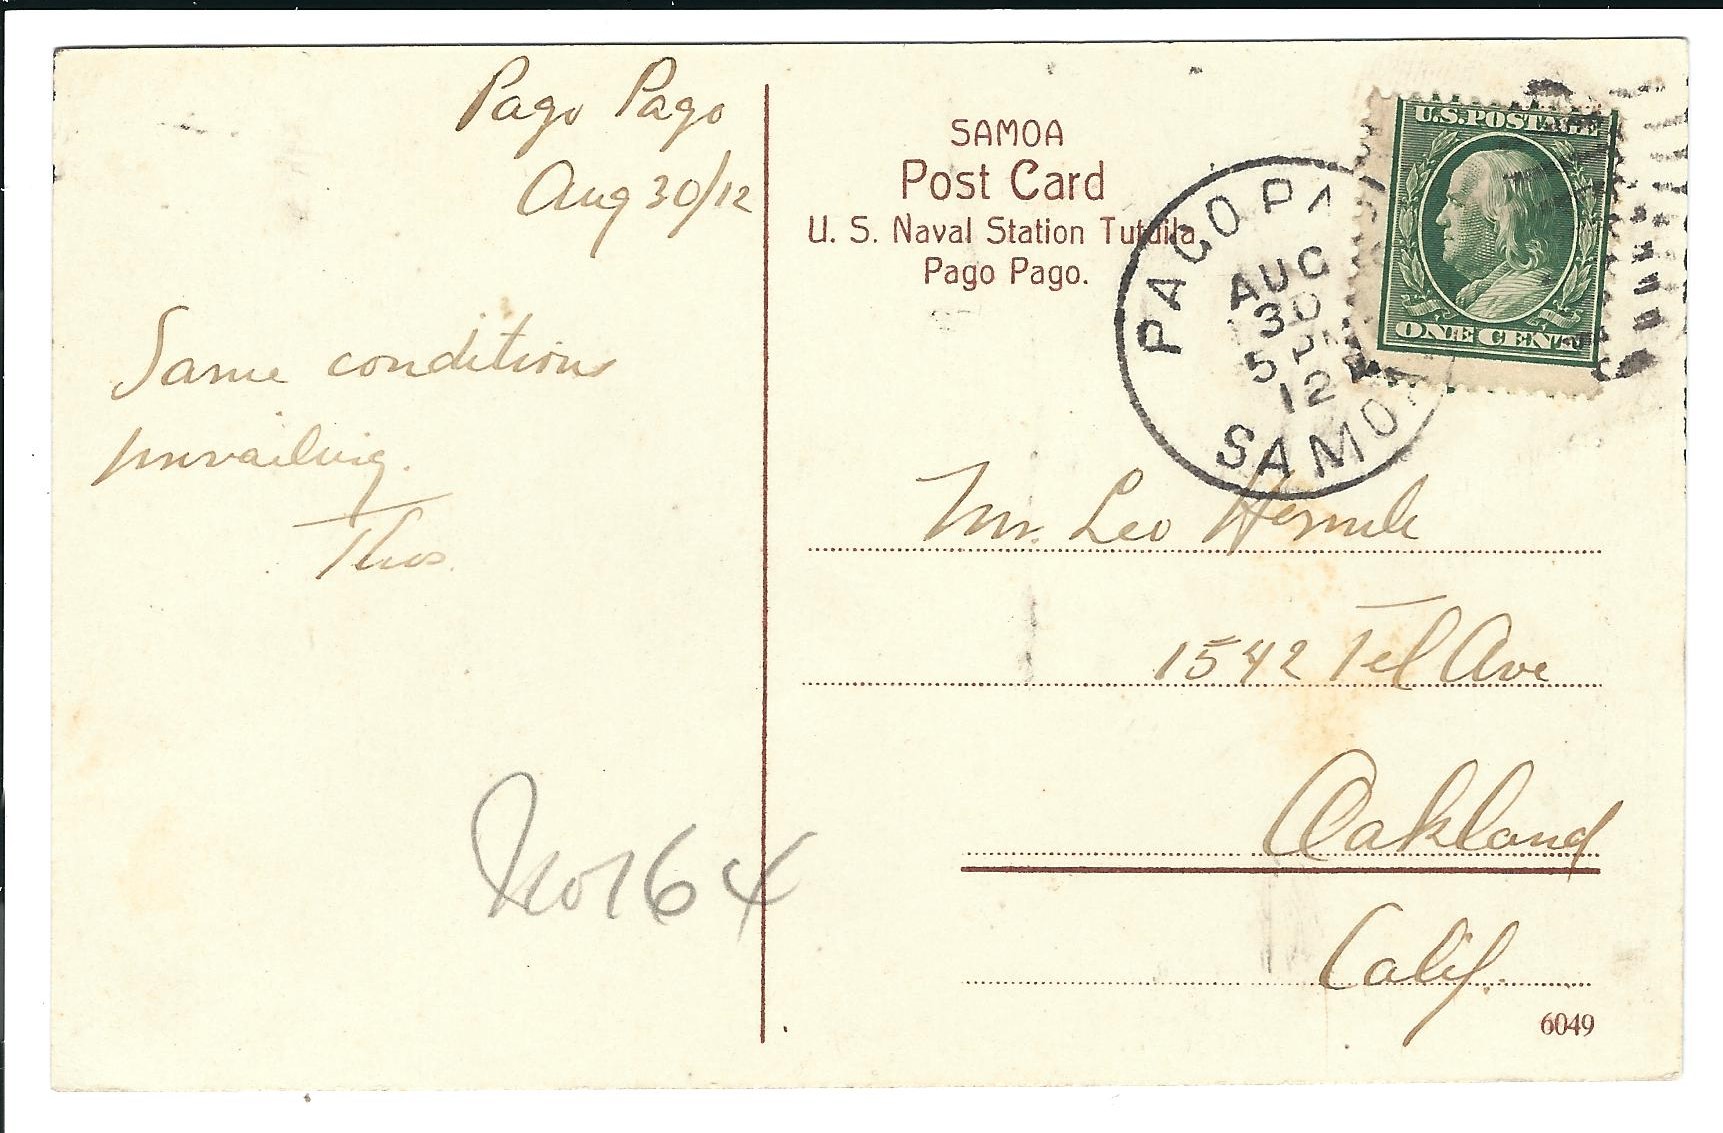 Pago Pago
Aug 30/12
Same conditions
prevailing.
Thos.
No 164
SAMOA
Post Card
U. S. Naval Station Tutuila
Pago Pago.
PAGO PA
AUG
30
5 PM
12
SAMOA
U.S. POSTAGE
ONE CENT
Mr. Leo
1542 Tel Ave
Oakland
Calif.
6049